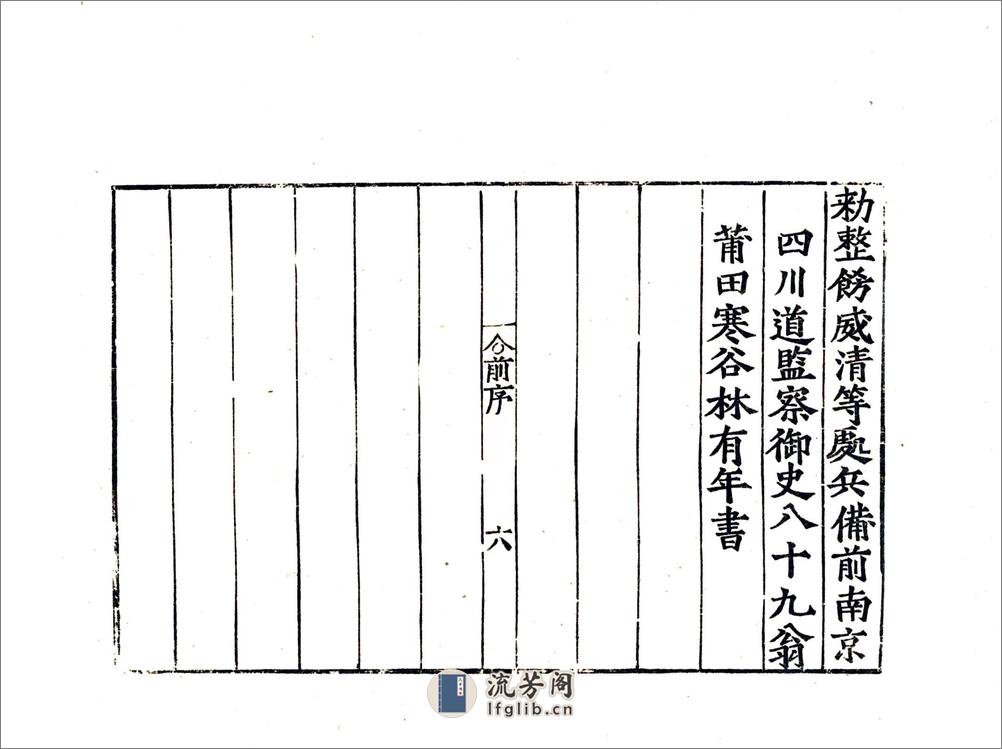 勑整餝威清等處兵備前南京
四川道監察御史八十九翁
莆田寒谷林有年書
前序
六
流芳阁
lfglib.cn